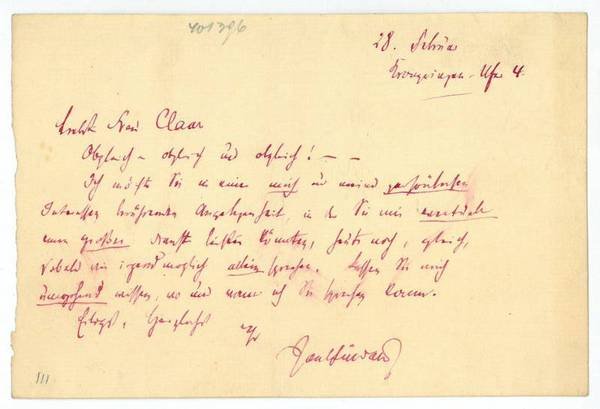 401396
28. Februar
Kronprinzen-Ufer 4.
Verehrte Frau Claar
Obgleich – obgleich und obgleich! – –
Ich möchte Sie in einer mich und meine persönlichen
Interessen berührenden Angelegenheit, in der Sie mir eventuell
einen großen Dienst leisten könnten, heute noch, gleich,
sobald wie irgend möglich allein sprechen. Lassen Sie mich
umgehend wissen, wo und wann ich Sie sprechen kann.
Eiligst, herzlichst
Ihr
Paul Lindau
III